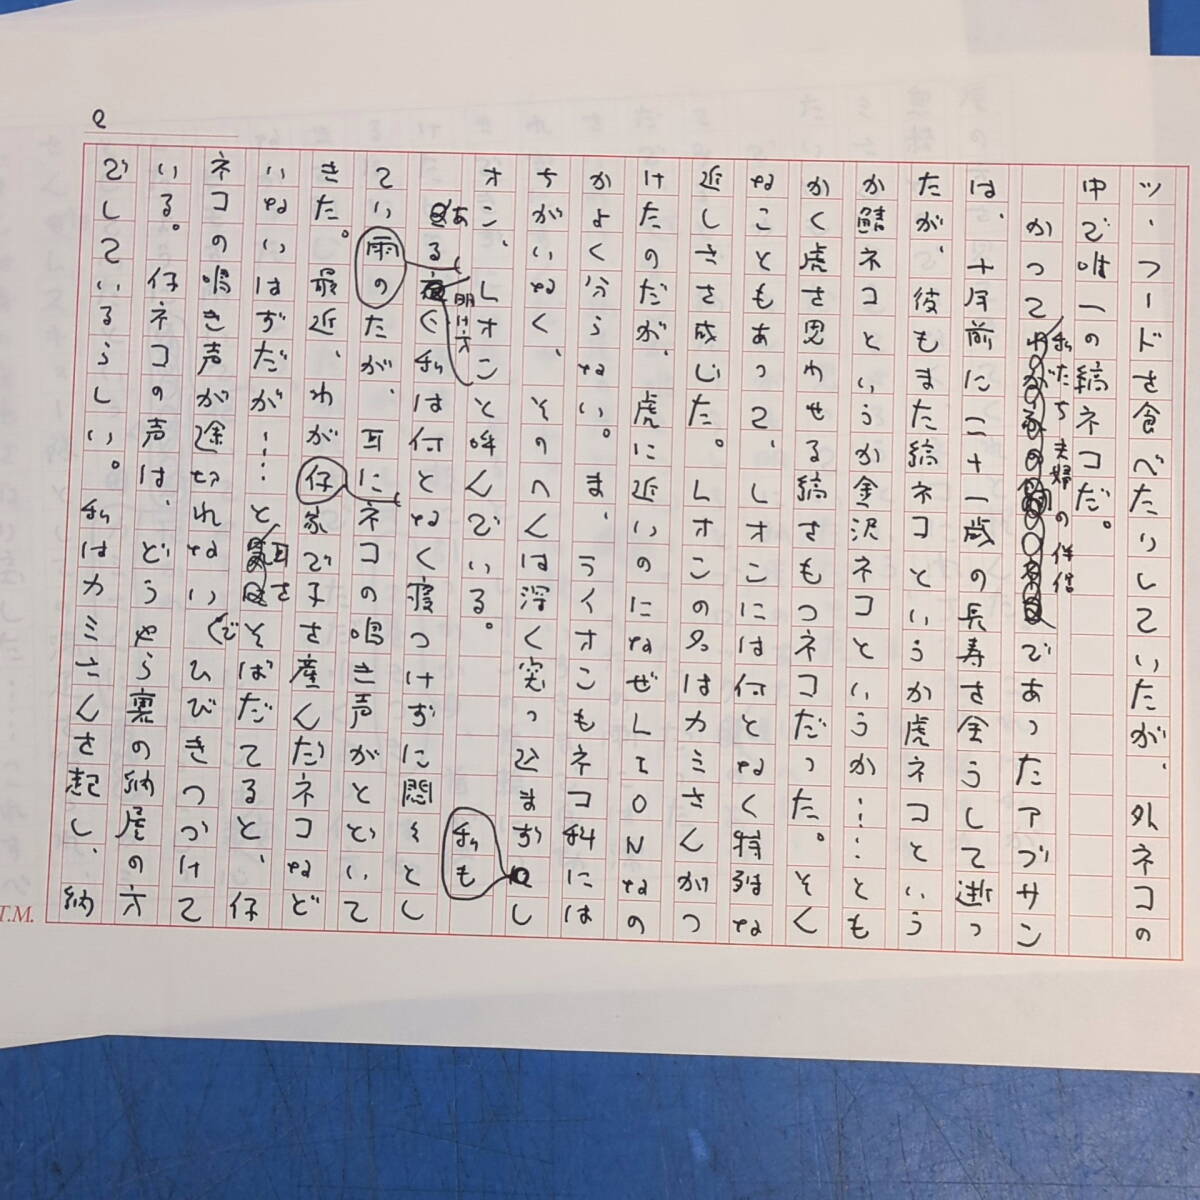 ツ・フードを食べたりしていたが、外ネコの
中で唯一の縞ネコだ。
かつて私たち夫婦の伴侶であったアブサン
は、十年前に二十一歳の長寿を全うして逝っ
たが、彼もまた縞ネコというか虎ネコという
か鯖ネコというか金沢ネコというか……とも
かく虎を思わせる縞をもつネコだった。そん
なこともあって、レオンには何となく特別な
近しさを感じた。レオンの名はカミさんがつ
けたのだが、虎に近いのになぜLEONなの
かよく分らない。ま、ライオンもネコ科には
ちがいなく、そのへんは深く突っ込まず、私も
レオン、レオンと呼んでいる。
ある雨の明け方、私は何となく寝つけずに悶々とし
ていたが、耳に仔ネコの鳴き声がとどいて
きた。最近、わが家で子を産んだネコなど
いないはずだが……と耳をそばだてると、仔
ネコの鳴き声が途切れないでひびきつづけて
いる。仔ネコの声は、どうやら裏の納屋の方
でしているらしい。私はカミさんを起し、納
T.M.